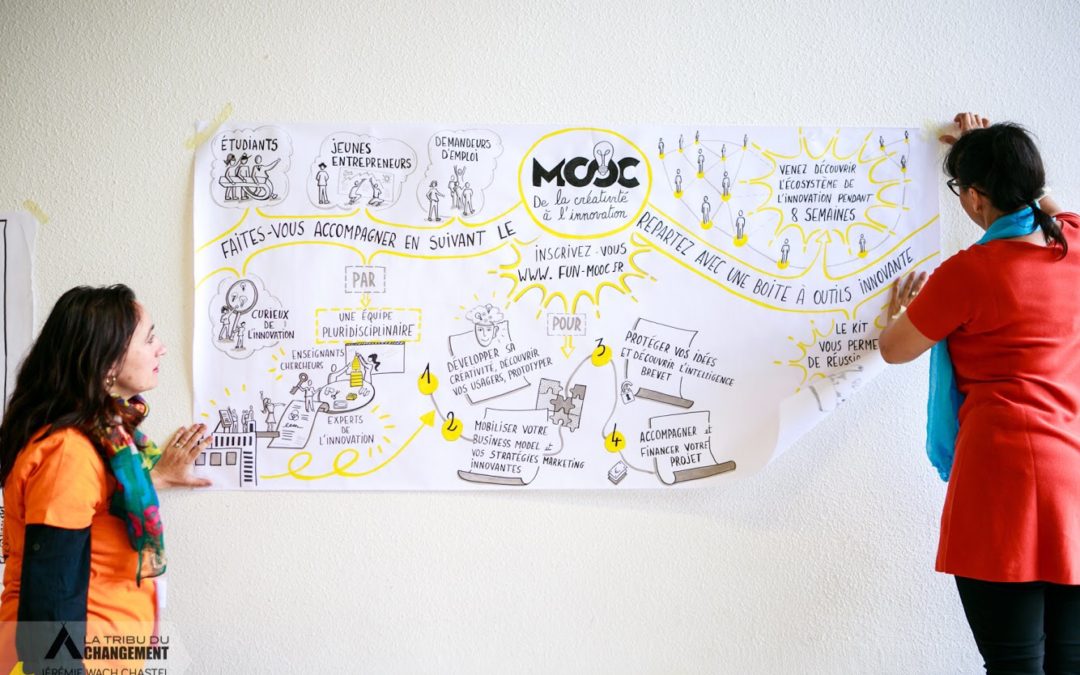 ÉTUDIANTS
JEUNES
ENTREPRENEURS
DEMANDEURS
D'EMPLOI
MOOC
De la créativité
à l'innovation
VENEZ DÉCOUVRIR
L'ÉCOSYSTÈME DE
L'INNOVATION PENDANT
8 SEMAINES
FAITES-VOUS ACCOMPAGNER EN SUIVANT LE
REPARTEZ AVEC UNE BOÎTE À OUTILS INNOVANTE
INSCRIVEZ-VOUS
WWW. FUN-MOOC.FR
CURIEUX
DE
L'INNOVATION
PAR
UNE ÉQUIPE
PLURIDISCIPLINAIRE
ENSEIGNANTS
CHERCHEURS
EXPERTS
DE
L'INNOVATION
POUR
1
DÉVELOPPER SA
CRÉATIVITÉ, DÉCOUVRIR
VOS USAGERS, PROTOTYPER
2
MOBILISER VOTRE
BUSINESS MODEL et
VOS STRATÉGIES MARKETING
INNOVANTES
3
PROTÉGER VOS IDÉES
ET DÉCOUVRIR L'INTELLIGENCE
BREVET
4
ACCOMPAGNER et
FINANCER VOTRE
PROJET
LE KIT
VOUS PERME
DE RÉUSSIR
LA TRIBU DU
CHANGEMENT
JÉRÉMIE WACH CHASTEL